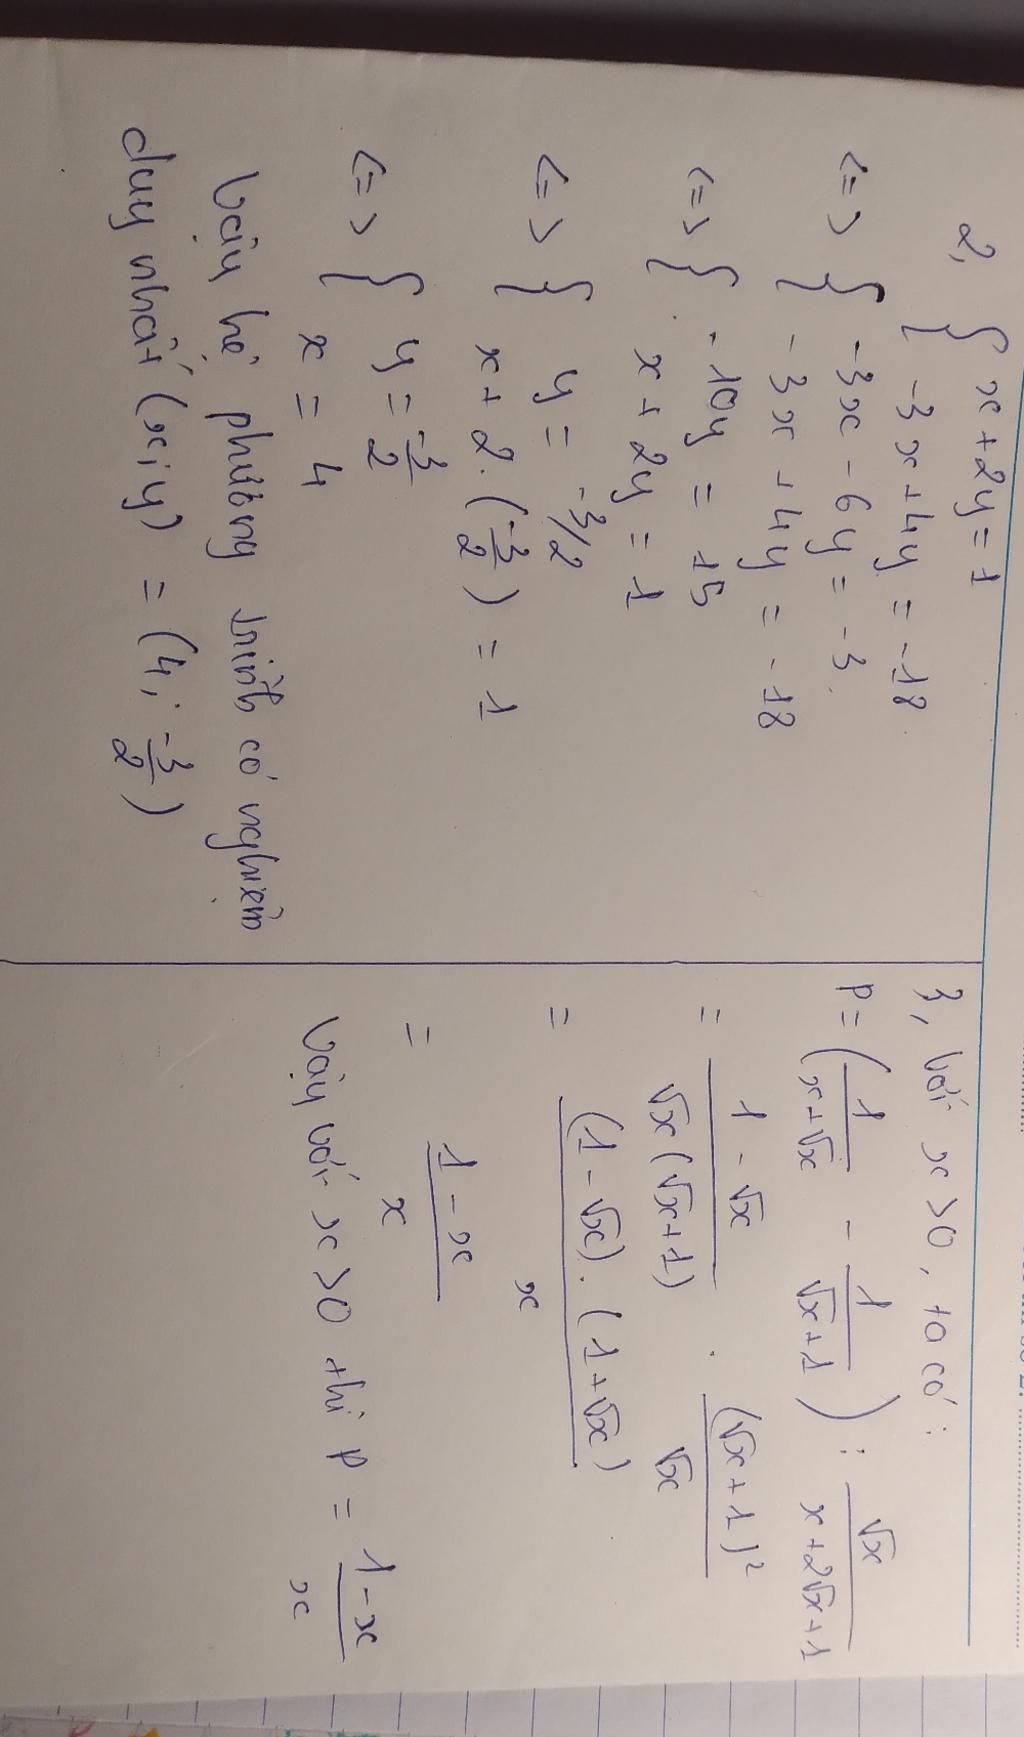 2, { x + 2y = 1
-3x + 4y = -18
<=> { -3x - 6y = -3
-3x + 4y = -18
<=> { -10y = 15
x + 2y = 1
<=> { y = -3/2
x + 2.(-3/2) = 1
<=> { y = -3/2
x = 4
Vậy hệ phương trình có nghiệm
duy nhất (x;y) = (4; -3/2)
3, với x > 0, ta có:
P = (1/(x+√x) - 1/(√x+1)) : √x/(x+2√x+1)
= (1-√x)/(√x(√x+1)) . (√x+1)²/√x
= (1-√x).(1+√x)/x
= (1-x)/x
Vậy với x > 0 thì P = (1-x)/x